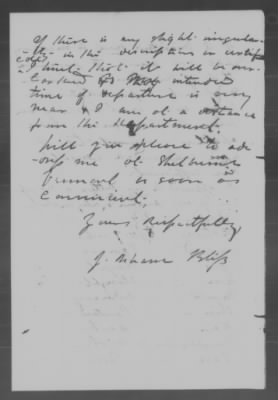 If there is any slight irregular-
-ity in the description or certifi-
cate I trust that it will be over-
looked as intended
time of departure is very
near & I am at a distance
from the Department.
Will you please to ad-
me at Shelburne
Vermont as soon as
convenient,
Yours Respectfully
J. Bliss